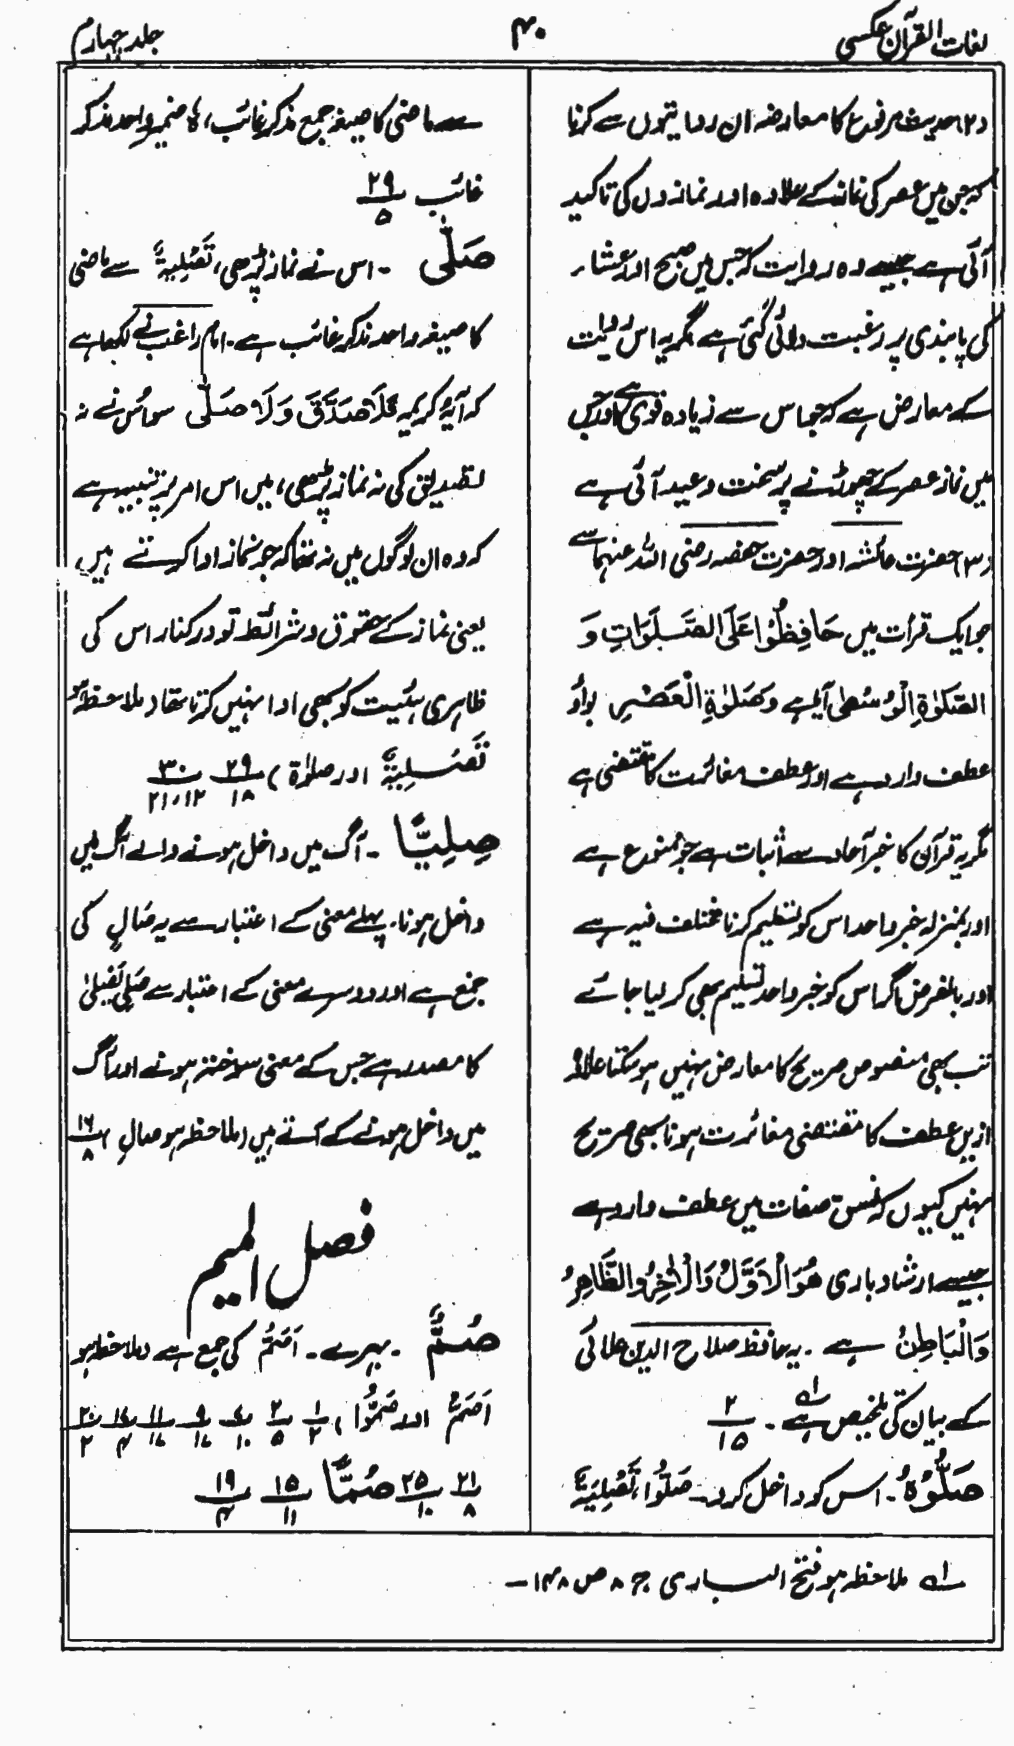 لغات القرآن عکسی
۴۰
جلد چہارم
(۲) حدیث مرفوع کا معارضہ ان روایتوں سے کرنا
کہ جن میں عصر کی نماز کے علاوہ اور نمازوں کی تاکید
آئی ہے جیسے وہ روایت کہ جس میں صبح اور عشار
کی پابندی پر رغبت دلائی گئی ہے مگر یہ اس روایت
کے معارض ہے کہ جو اس سے زیادہ قوی ہے اور جس
میں نماز عصر کے چھوڑنے پر سخت وعید آئی ہے
(۳) حضرت عائشہ اور حضرت حفصہ رضی اللہ عنہما سے
جو ایک قرأت میں حَافِظُوْا عَلَی الصَّلَوَاتِ وَ
الصَّلوٰةِ الْوُسْطٰی آیا ہے وَصَلوٰةِ الْعَصْرِ بواؤ
عطف وارد ہے اور عطف مغائرت کا مقتضی ہے
مگر یہ قرآن کا خبر آحاد سے اثبات ہے جو ممنوع ہے
اور بمنزلہ خبر واحد اس کو تسلیم کرنا مختلف فیہ ہے
اور بالفرض اگر اس کو خبر واحد تسلیم بھی کر لیا جائے
تب بھی منصوص صریح کا معارض نہیں ہو سکتا علاوہ
ازیں عطف کا مقتضی مغائرت ہونا بھی صریح
نہیں کیوں کہ نسق صفات میں عطف وارد ہے
جیسے ارشاد باری هُوَ الْاَوَّلُ وَالْاٰخِرُ وَالظَّاهِرُ
وَالْبَاطِنُ ہے ۔ یہ حافظ صلاح الدین علائی
کے بیان کی تلخیص ہے ۔ لہ ۲/۱۵
صَلُّوْهُ ۔ اس کو داخل کرو ۔ صَلُّوْا، تَصْلِيَةٌ
سے ماضی کا صیغہ جمع مذکر غائب، ہ ضمیر واحد مذکر
غائب ۲۹/۵
صَلّٰى ۔ اس نے نماز پڑھی، تَصْلِيَةٌ سے ماضی
کا صیغہ واحد مذکر غائب ہے ۔ امام راغب نے لکھا ہے
کہ آیۂ کریمہ فَلَا صَدَّقَ وَلَا صَلّٰى سو اس نے نہ
تصدیق کی نہ نماز پڑھی، میں اس امر پر تنبیہ ہے
کہ وہ ان لوگوں میں نہ تھا کہ جو نماز ادا کرتے ہیں
یعنی نماز کے حقوق و شرائط تو درکنار اس کی
ظاہری ہئیت کو بھی ادا نہیں کرتا تھا (ملاحظہ ہو
تَصْلِيَةٌ اور صلوٰۃ) ۲۹/۱۸ ۳۰/۲۱،۱۲
صِلِيًّا ۔ آگ میں داخل ہونے والے آگ میں
داخل ہونا ۔ پہلے معنی کے اعتبار سے یہ صَالٍ کی
جمع ہے اور دوسرے معنی کے اعتبار سے صَلِیَ یَصْلٰی
کا مصدر ہے جس کے معنی سوختہ ہونے اور آگ
میں داخل ہونے کے آتے ہیں (ملاحظہ ہو صالِ) ۱۶/۸
فصل المیم
صُمٌّ ۔ بہرے ۔ اَصَمُّ کی جمع ہے (ملاحظہ ہو
اَصَمُّ اور صَمُّوْا) ۱/۲ ۲/۵ ۷/۱۰ ۹/۱۷ ۱۱/۱۷ ۱۷/۴ ۲۰/۲
۲۱/۸ ۲۵/۱۰ صُمًّا ۱۵/۱۱ ۱۹/۴
لہ ملاحظہ ہو فتح الباری ج ۸ ص ۱۴۸ ــ